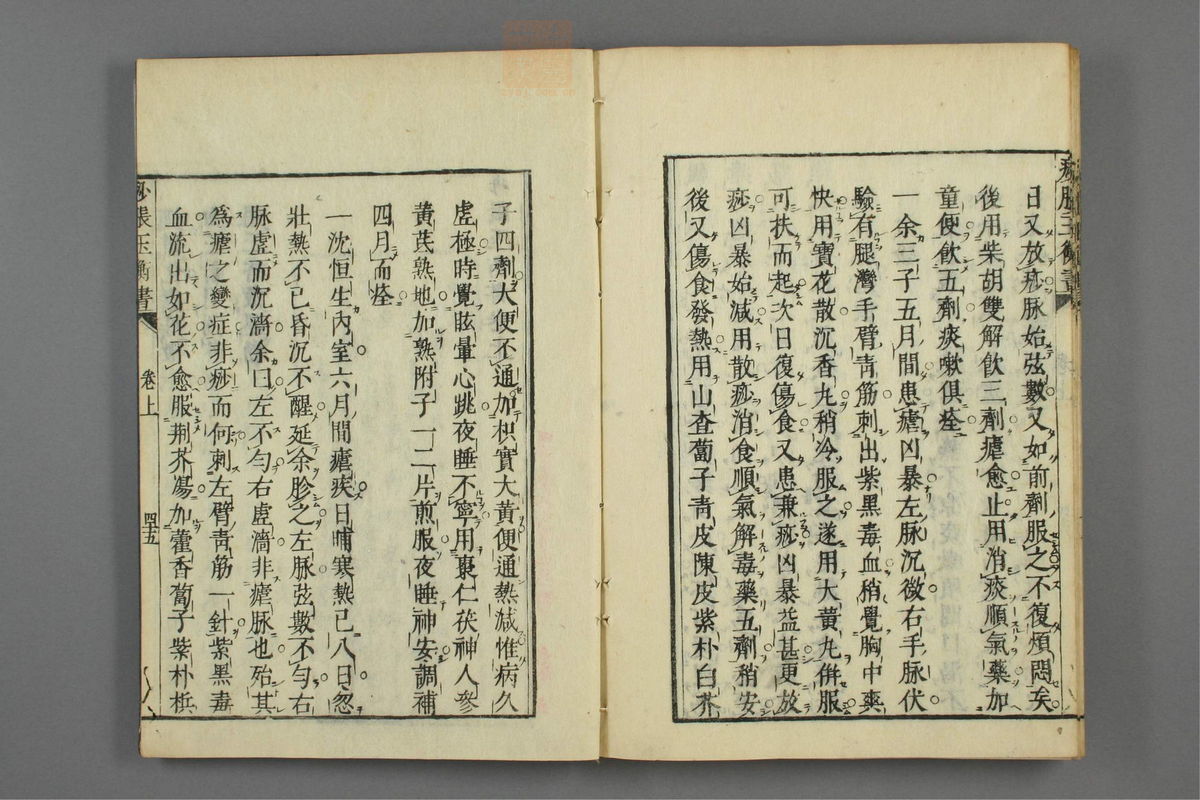 日又放痧脉始弦數又如前劑服之不復煩悶矣
後用柴胡雙解飲三劑瘧愈止用消痰順氣藥加
童便飲五劑痰嗽俱痊
一余三子五月間患瘧凶暴左脉沉微右手脉伏
驗有腿灣手臂靑筋刺出紫黑毒血稍覺胸中爽
快用寶花散沉香丸稍冷服之遂用大黃丸併服
可扶而起次日復傷食又患兼痧凶暴益甚更放
痧凶暴始減用散痧消食順氣解毒藥五劑稍安
後又傷食發熱用山査蔔子靑皮陳皮紫朴白芥
子四劑大便不通加枳實大黃便通熱減惟病久
虛極時覺眩暈心跳夜睡不寧用棗仁茯神人參
黃芪熟地加熟附子一二片煎服夜睡神安調補
四月而痊
一沈恒生內室六月間瘧疾日晡寒熱已八日忽
壯熱不已昏沉不醒延余胗之左脉弦數不勻右
脉虛而沉濇余曰左不勻右虛濇非瘧脉也殆其
爲瘧之變症非痧而何刺左臂靑筋一針紫黑毒
血流出如花不愈服荆芥湯加藿香蔔子紫朴梹
痧脹玉衡書
卷上
四十五